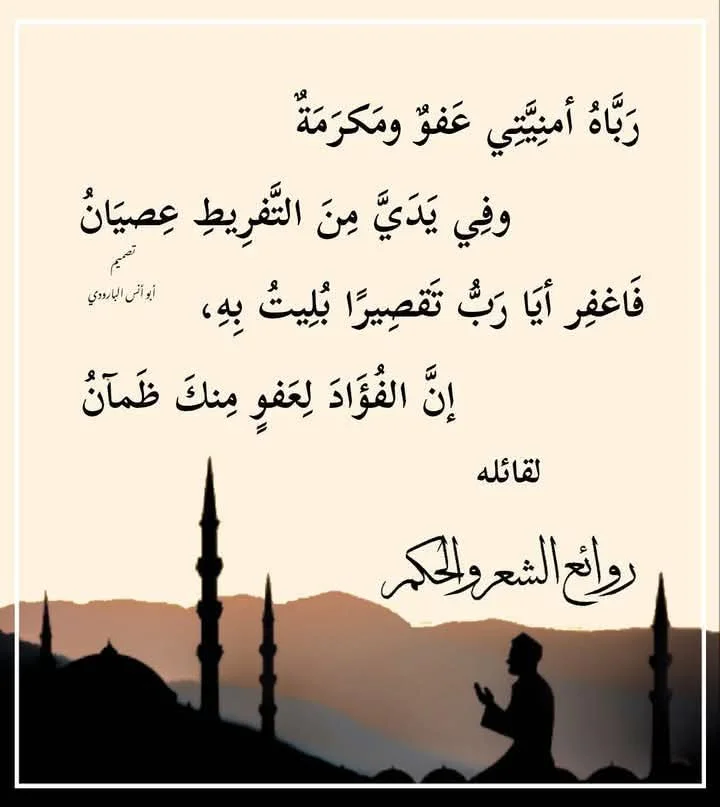 رَبَّاهُ أمنِيَّتِي عَفوٌ ومَكرَمَةٌ
وفِي يَدَيَّ مِنَ التَّفرِيطِ عِصيَانُ
تصميم
أبو أنس البارودي
فَاغفِر أيَا رَبُّ تَقصِيرًا بُلِيتُ بِهِ،
إنَّ الفُؤَادَ لِعَفوٍ مِنكَ ظَمآنُ
لقائله
روائع الشعر والحكم